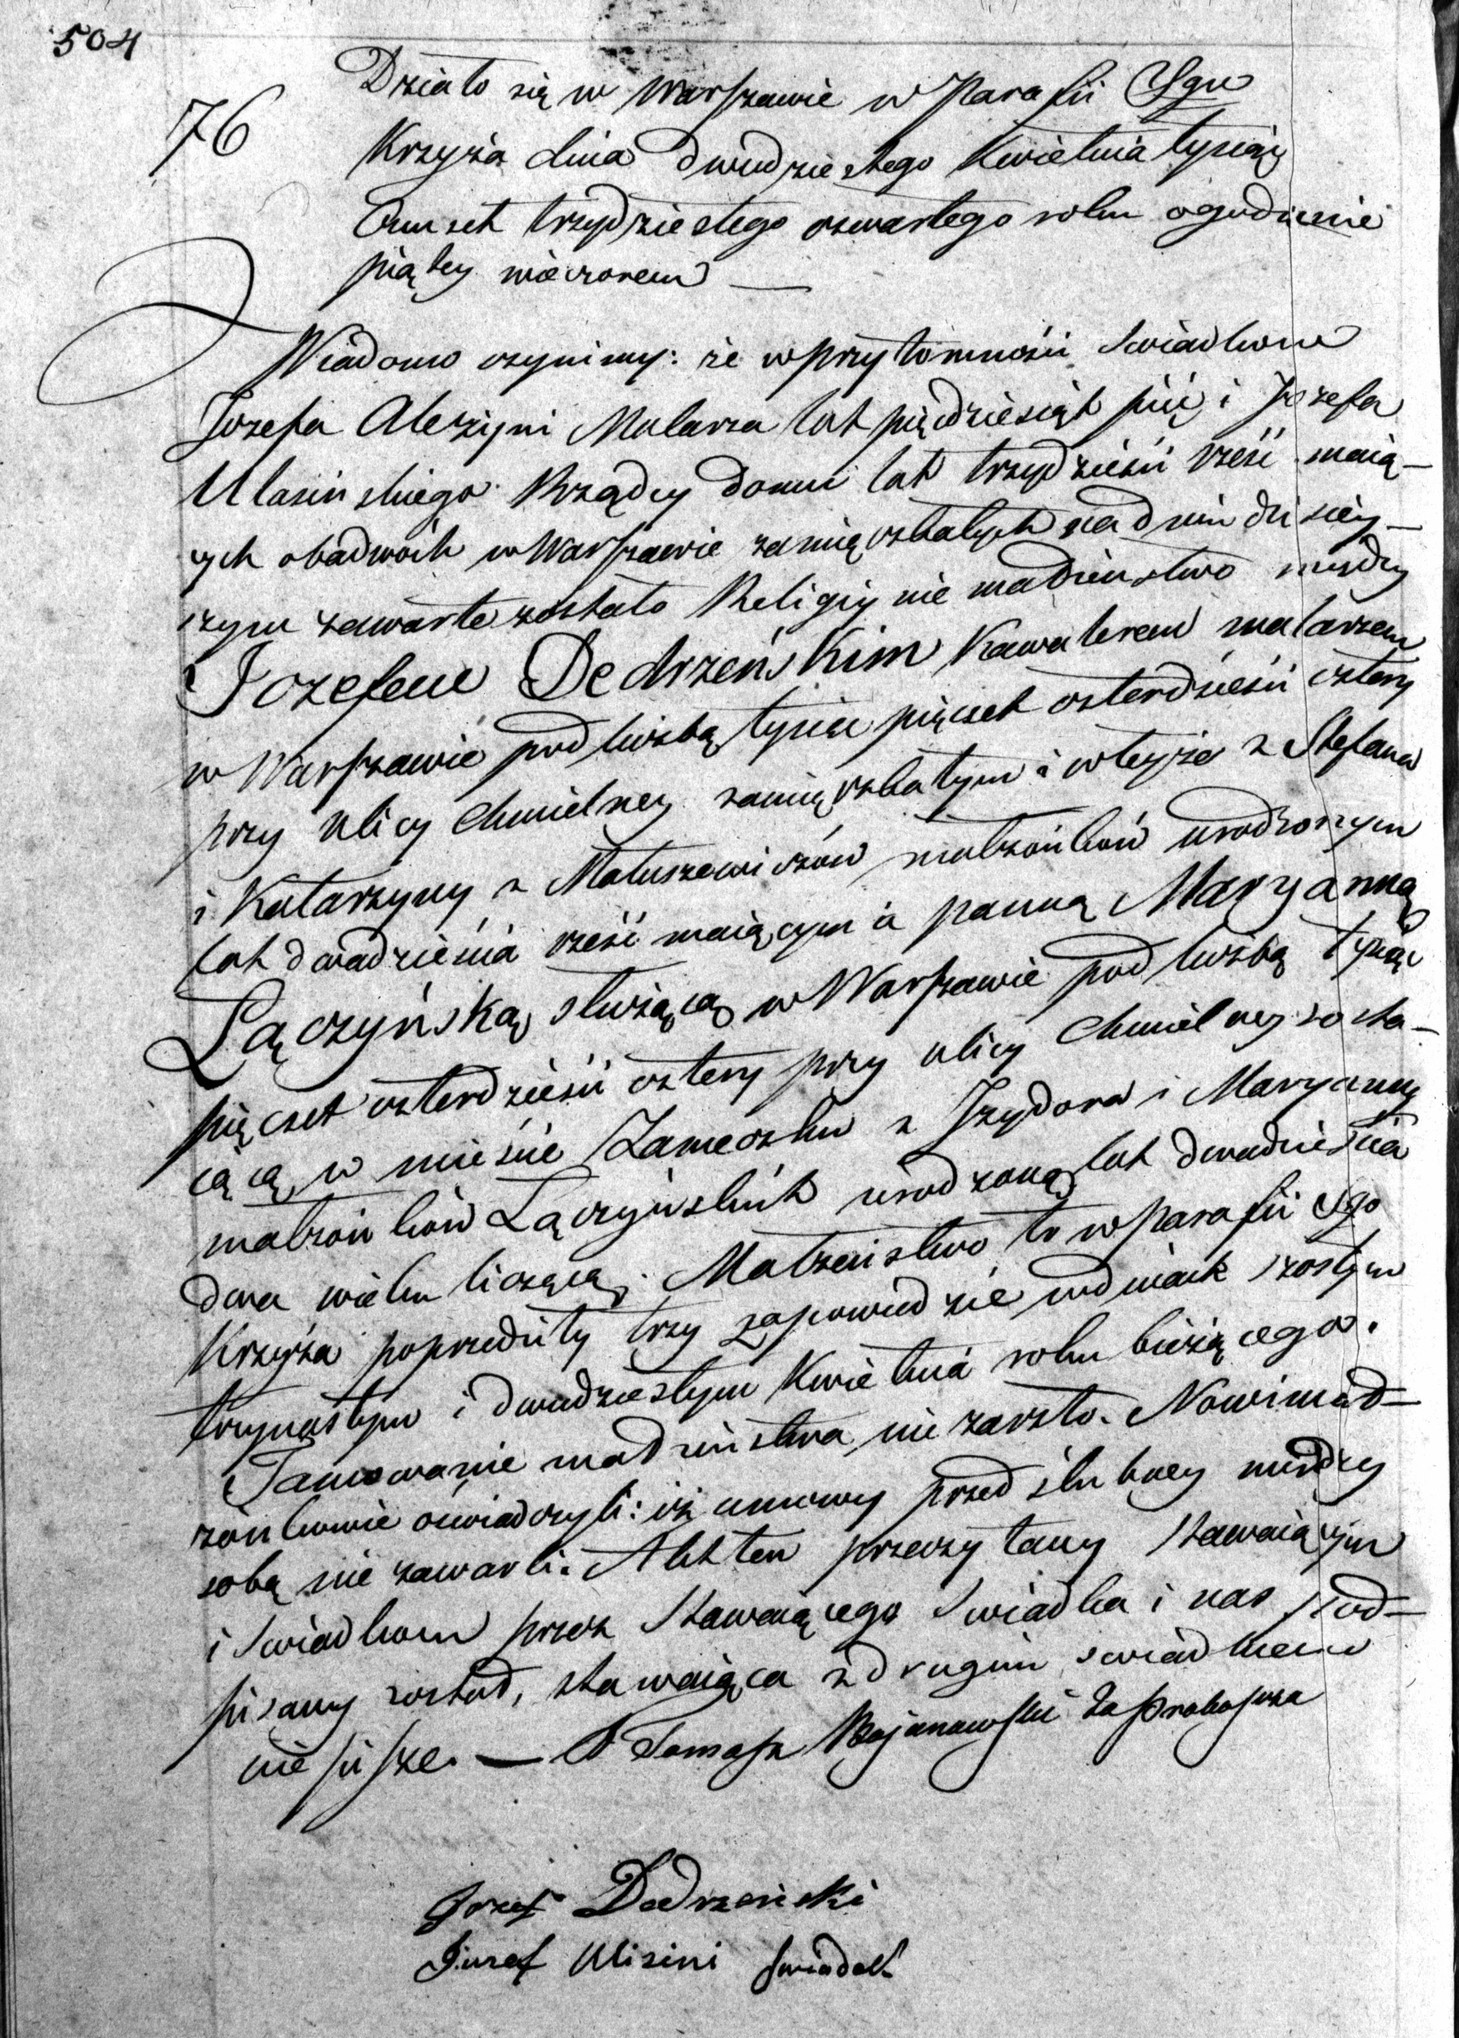 504
76
Działo się w Warszawie w Parafii Sgo
Krzyża dnia dwudziestego Kwietnia tysiąc
Ośmset trzydziestego czwartego roku o godzinie
piątey wieczorem —
Wiadomo czynimy: że w przytomności Swiadków
Jozefa Malarza lat pięćdziesiąt pięć i Jozefa
Ulasińskiego Rządcy domu lat trzydzieści sześć maią-
cych obadwóch w Warszawie zamięszkałych na dniu dzisiey-
szym zawarte zostało Religiynie małżeństwo między
Jozefem Dedrzeńskim Kawalerem malarzem
w Warszawie pod liczbą tysiąc pięćset czterdzieści cztery
przy ulicy Chmielney zamięszkałym i w teyże z Stefana
i Katarzyny z Matuszewiczów małżonków urodzonym
lat dwadzieścia sześć maiącym a panną Maryanną
Łączyńską służącą w Warszawie pod liczbą tysiąc
pięćset czterdzieści cztery przy ulicy Chmielney zosta-
iącą, w mieście Zameczku z Izydora i Maryanny
małżonków Łączyńskich urodzoną, lat dwadzieścia
dwa wieku liczącą. Małżeństwo to w parafii Sgo
Krzyża poprzedziły trzy zapowiedzie w dniach szostym
trzynastym i dwudziestym Kwietnia roku bieżącego.
Tamowanie małżeństwa nie zaszło. Nowi małż-
żonkowie oświadczyli: iż umowy przedślubney między
sobą nie zawarli. Akt ten przeczytany stawaiącym
i swiadkom przez stawaiącego swiadka i nas pod-
pisany został, stawaiąca z drugim swiadkiem
nie pisze. — X Tomasz Bojanowski Za Proboszcza
Jozef Dedrzeński
Juzef Alisini swiadek